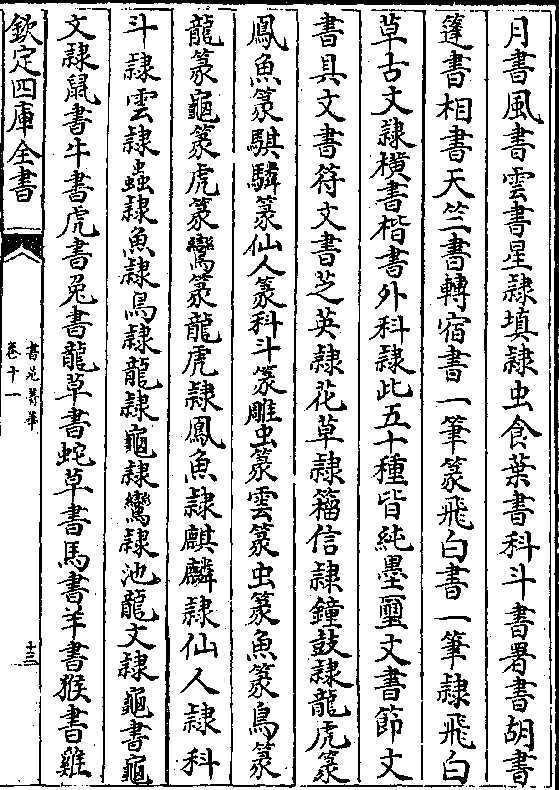 月書風書雲書星隸填隸虫食葉書科斗書署書胡書
篷書相書天竺書轉宿書一筆篆飛白書一筆隸飛白
草古文隸橫書楷書外科隸此五十種皆純墨璽文書節文
書具文書符文書芝英隸花草隸籀信隸鐘鼓隸龍虎篆
鳳魚篆騏驎篆仙人篆科斗篆雕虫篆雲篆虫篆魚篆鳥篆
龍篆龜篆虎篆鸞篆龍虎隸鳳魚隸麒麟隸仙人隸科
斗隸雲隸蟲隸魚隸鳥隸龍隸龜隸鸞隸池龍文隸龜書龜
文隸鼠書牛書虎書兔書龍草書蛇草書馬書羊書猴書雞
欽定四庫全書
書苑菁華
卷十一
十三